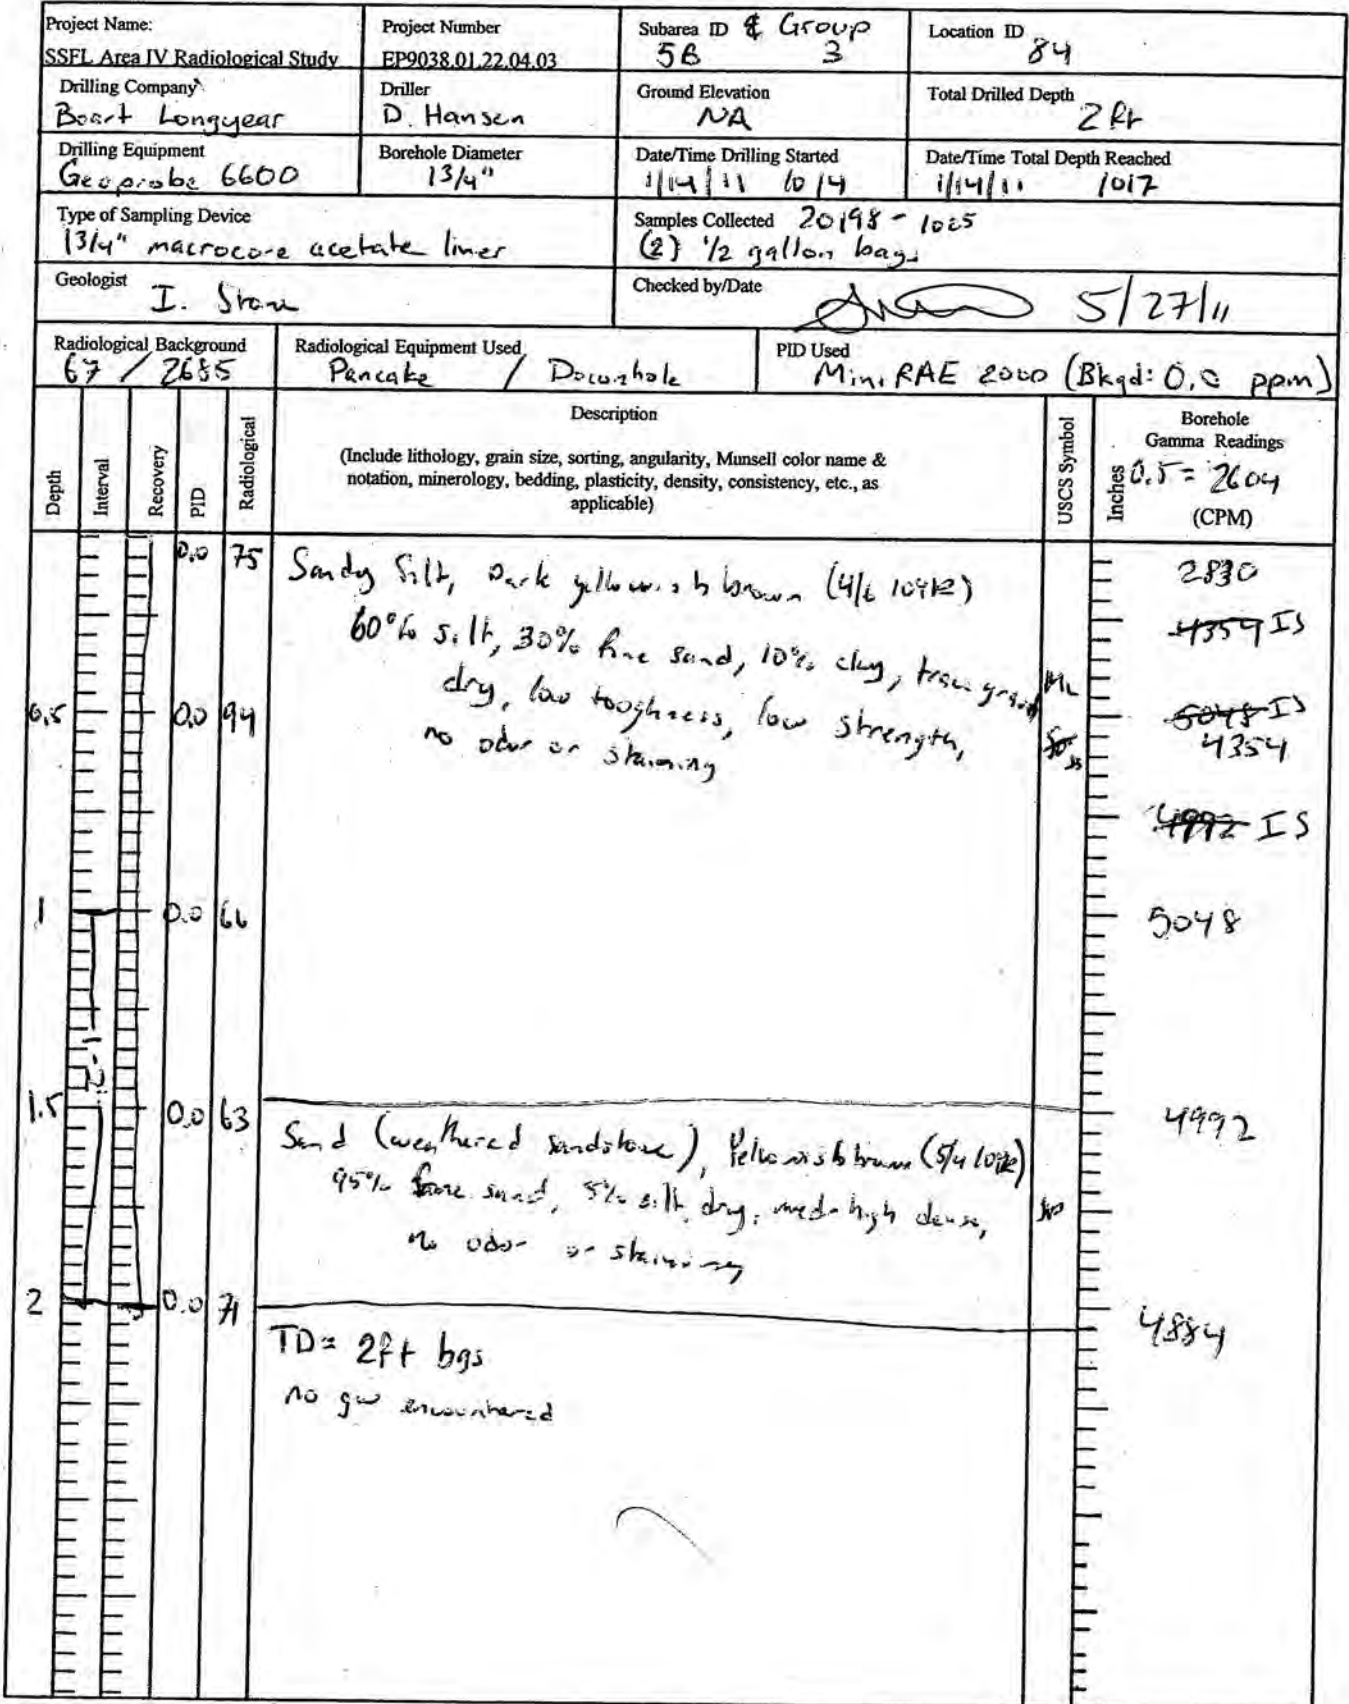 Project Name:
SSFL Area IV Radiological Study
Project Number
EP9038.01.22.04.03
Subarea ID & Group
5B 3
Location ID
84
Drilling Company
Boart Longyear
Driller
D. Hansen
Ground Elevation
NA
Total Drilled Depth
2 ft
Drilling Equipment
Geoprobe 6600
Borehole Diameter
1 3/4"
Date/Time Drilling Started
1/14/11 1014
Date/Time Total Depth Reached
1/14/11 1017
Type of Sampling Device
1 3/4" macrocore acetate liner
Samples Collected 20198 - 1025
(2) 1/2 gallon bags
Geologist
I.
Checked by/Date
5/27/11
Radiological Background
67 / 2685
Radiological Equipment Used
Pancake / Downhole
PID Used
MiniRAE 2000 (Bkgd: 0.0 ppm)
Depth
Interval
Recovery
PID
Radiological
Description
(Include lithology, grain size, sorting, angularity, Munsell color name &
notation, minerology, bedding, plasticity, density, consistency, etc., as
applicable)
USCS Symbol
Inches
Borehole
Gamma Readings
0.5 = 2604
(CPM)
0.0 75
Sandy Silt, Dark yellowish brown (4/6 10YR)
60% silt, 30% fine sand, 10% clay, trace gravel
dry, low toughness, low strength,
no odor or staining
ML
2830
4354 IS
0.5 0.0 94
5048 IS
4354
4992 IS
1 0.0 66
5048
1-2
1.5 0.0 63
4992
Sand (weathered sandstone), Yellowish brown (5/4 10YR)
95% fine sand, 5% silt, dry, med-high dense,
no odor or staining
SP
2 0.0 71
4884
TD= 2ft bgs
no gw encountered